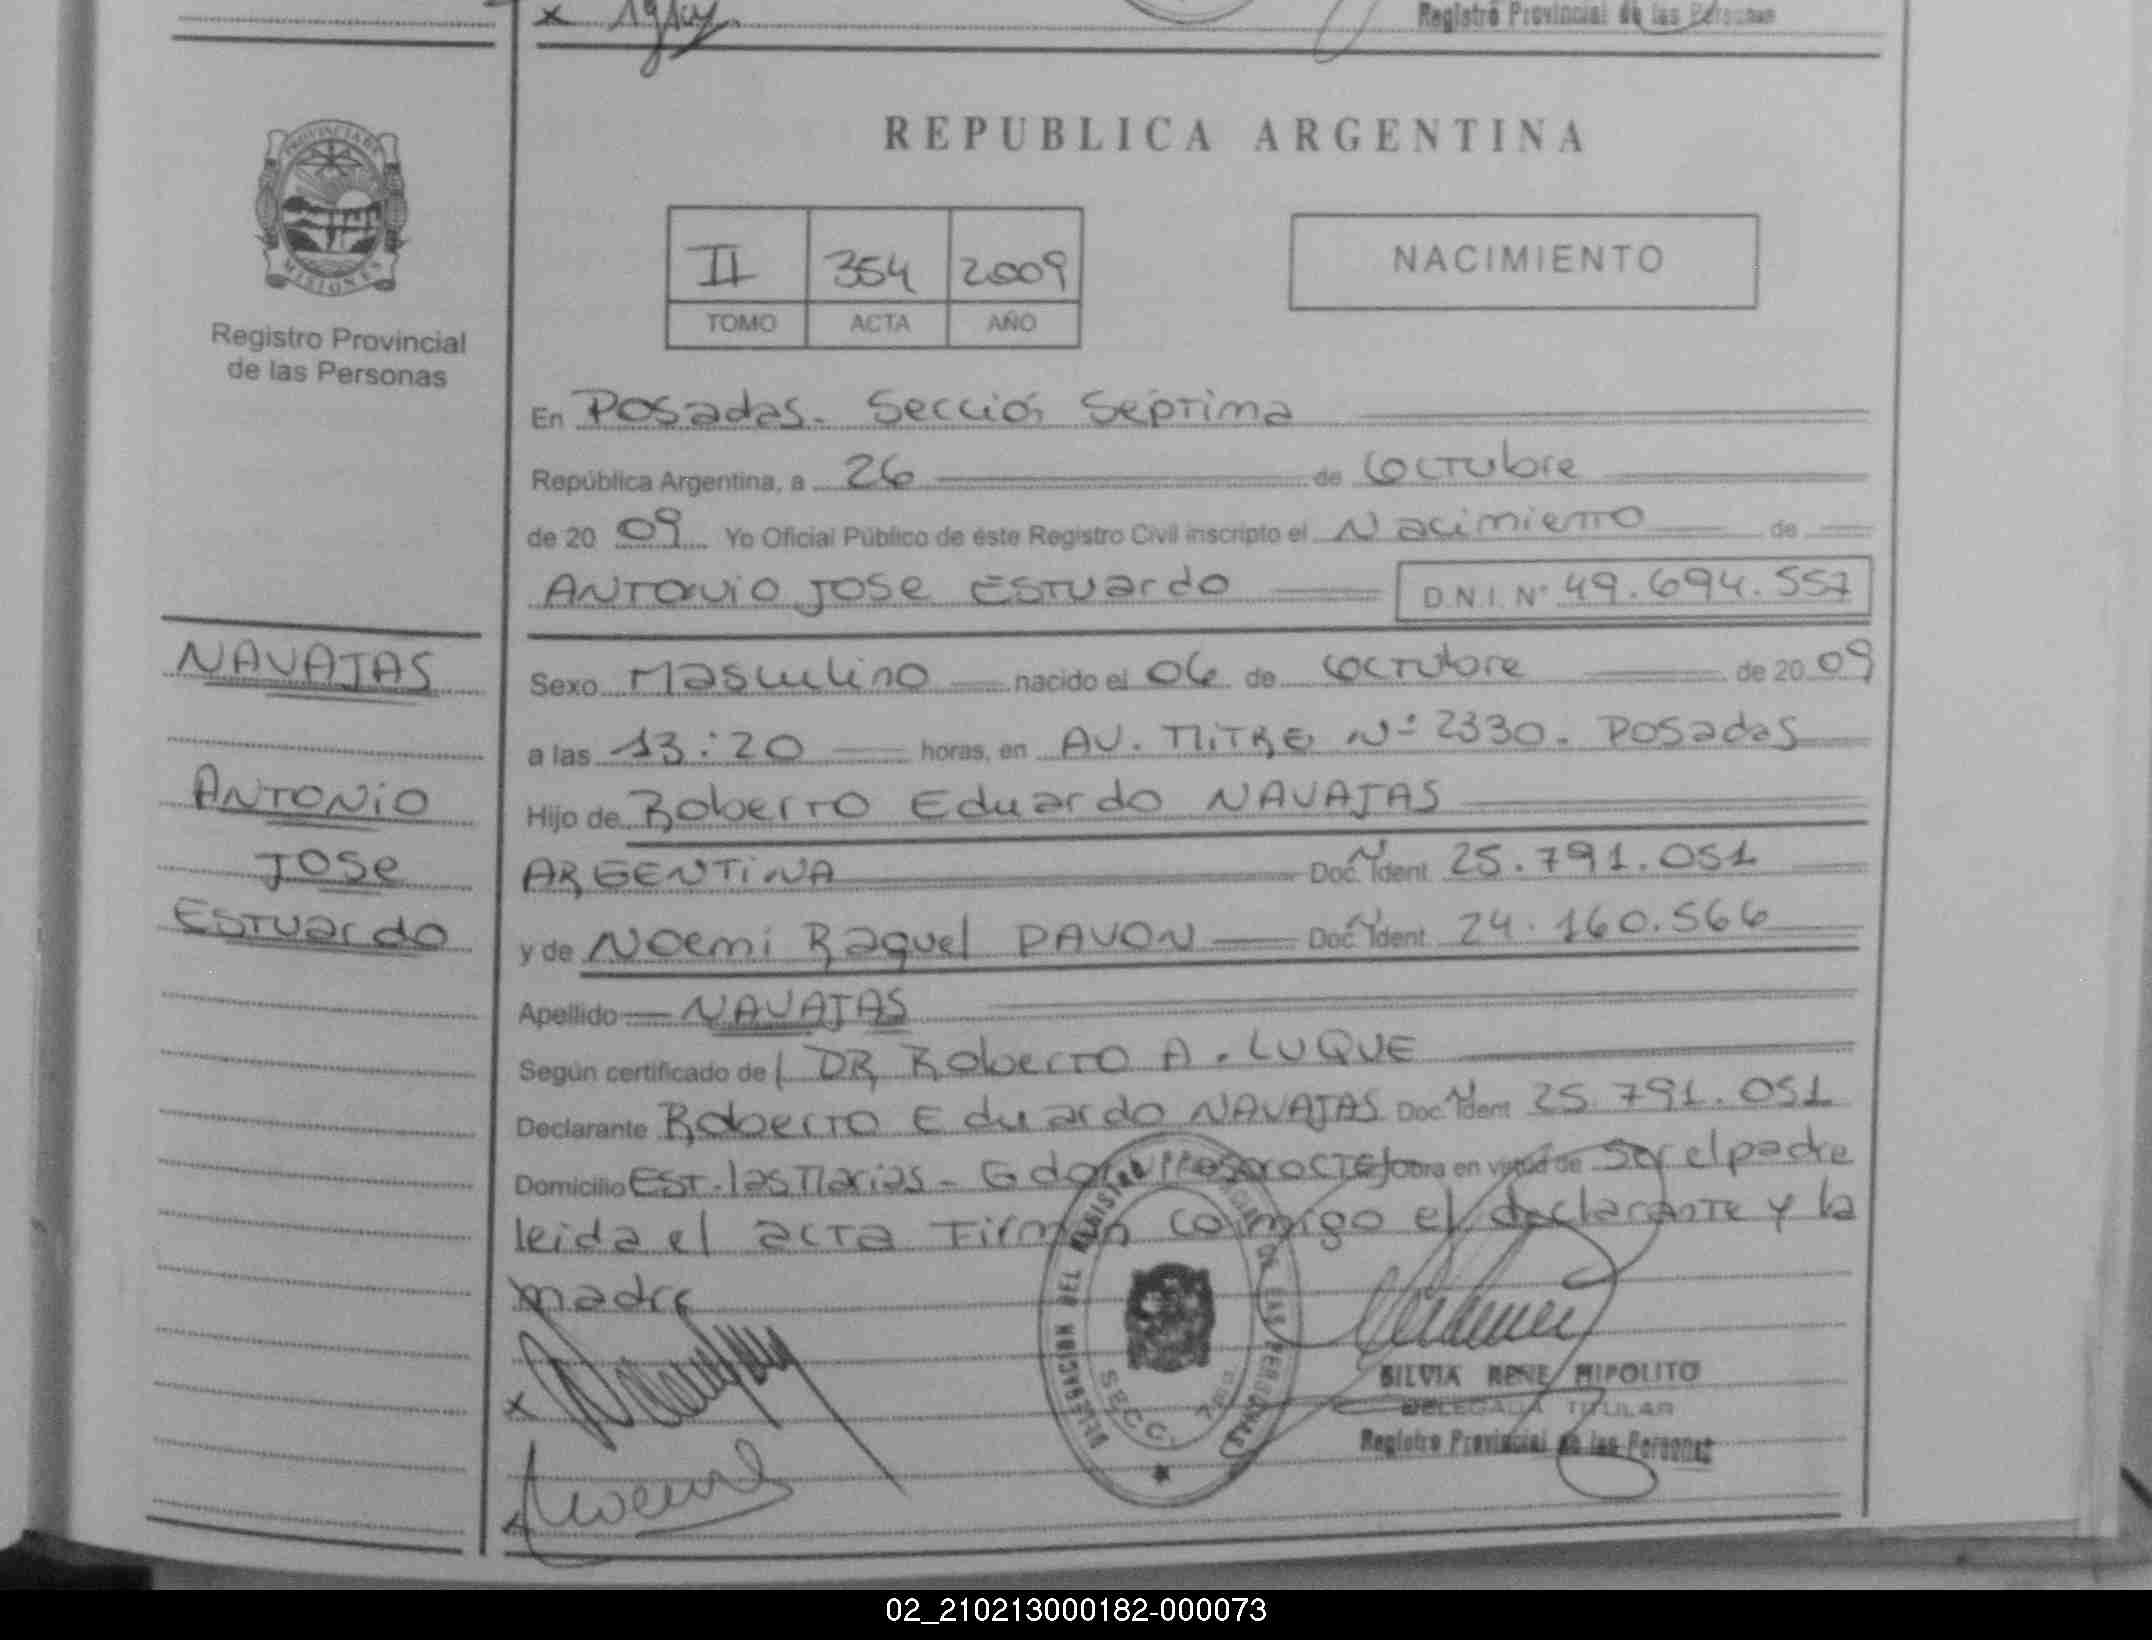 x
Registro Provincial de las Personas
PROVINCIA DE
MISIONES
Registro Provincial
de las Personas
REPUBLICA ARGENTINA
II 354 2009
TOMO ACTA AÑO
NACIMIENTO
En Posadas. Sección Septima
República Argentina, a 26 de Octubre
de 2009 Yo Oficial Público de éste Registro Civil inscripto el Nacimiento de
ANTONIO JOSE ESTUARDO D.N.I. Nº 49.694.557
NAVAJAS
ANTONIO
JOSE
ESTUARDO
Sexo Masculino nacido el 06 de Octubre de 2009
a las 13:20 horas, en AV. MITRE Nº 2330. Posadas
Hijo de Roberto Eduardo NAVAJAS
ARGENTINA Doc. Ident. 25.791.051
y de Noemi Raquel PAVON Doc. Ident. 24.160.566
Apellido NAVAJAS
Según certificado de DR Roberto A. LUQUE
Declarante Roberto Eduardo NAVAJAS Doc. Ident 25.791.051
Domicilio EST. las Marias - Gdor obra en virtud de Ser el padre
leida el acta Firman conmigo el declarante y la
madre
x
DELEGACION DEL REGISTRO PROVINCIAL DE LAS PERSONAS
SECC. 7ma
SILVIA RENE HIPOLITO
DELEGADA TITULAR
Registro Provincial de las Personas
02_210213000182-000073